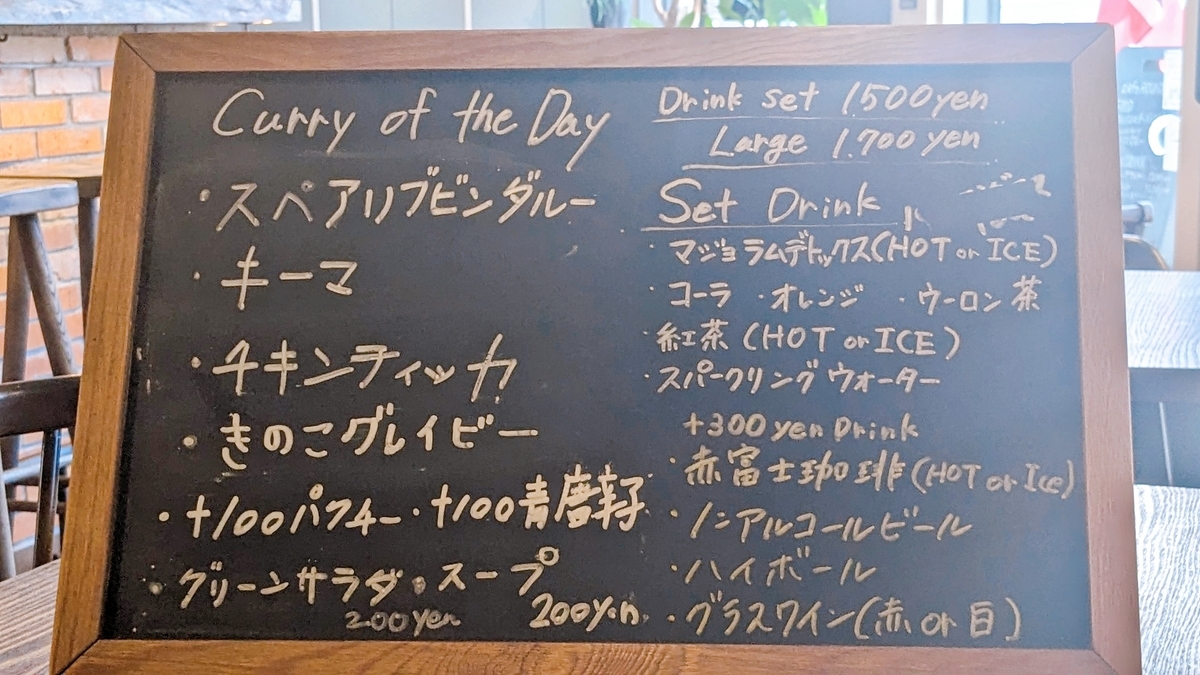 Curry of the Day
・スペアリブビンダルー
・キーマ
・チキンティッカ
・きのこグレイビー
・+100パクチー ・+100青唐辛子
・グリーンサラダ 200yen ・スープ 200yen
Drink set 1.500yen
Large 1.700yen
Set Drink
・マジョラムデトックス(HOT or ICE)
・コーラ ・オレンジ ・ウーロン茶
・紅茶(HOT or ICE)
・スパークリングウォーター
+300yen Drink
・赤富士珈琲(HOT or Ice)
・ノンアルコールビール
・ハイボール
・グラスワイン(赤 or 白)